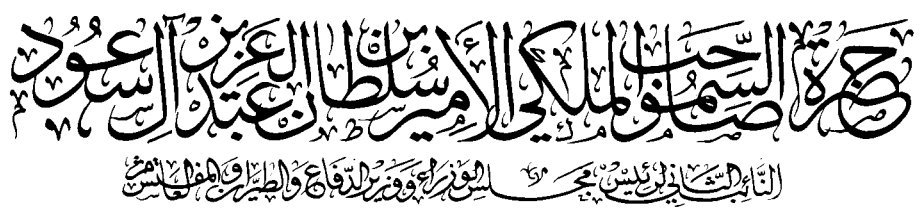 حضرة صاحب السمو الملكي الأمير سلطان بن عبد العزيز آل سعود
النائب الثاني لرئيس مجلس الوزراء ووزير الدفاع والطيران والمفتش العام